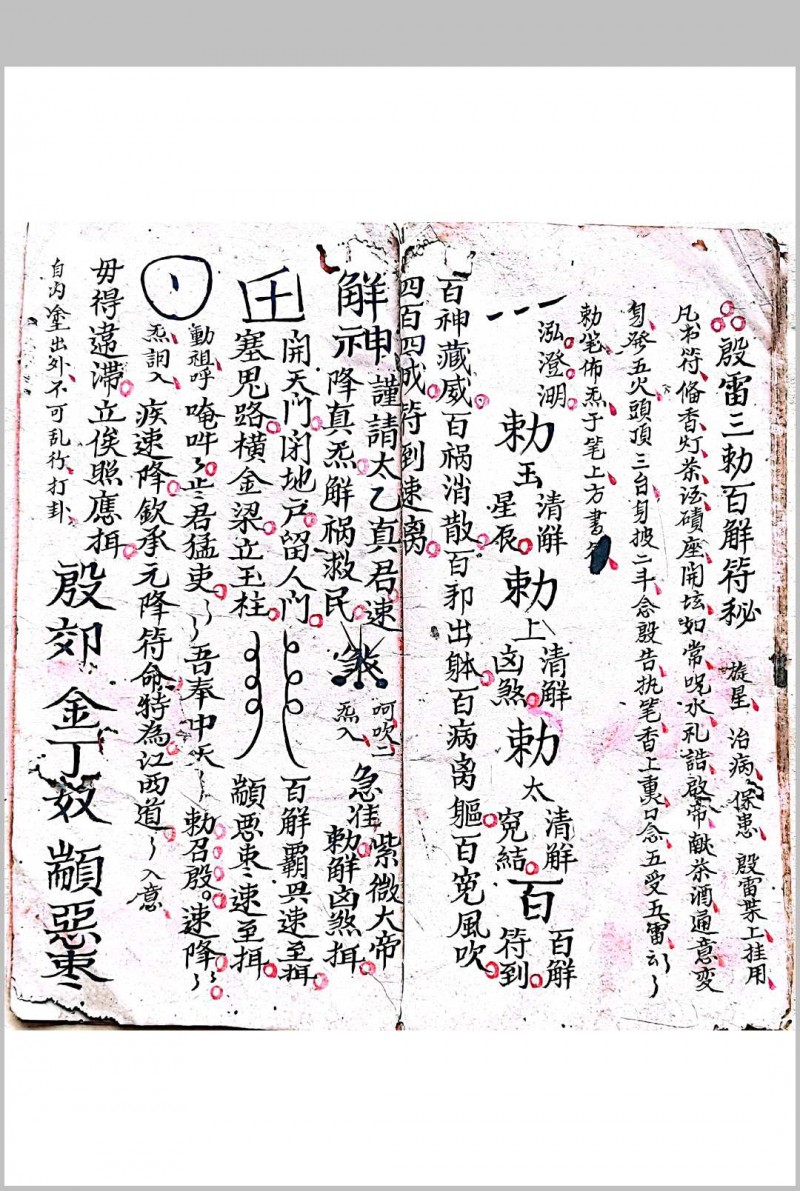 殷雷三勅百解符秘 旋星 治病 保患 殷雷架上挂用
凡书符俻香灯茶酒碛座開坛如常呪水礼誥啟帝献茶酒通意変
身發五火頭頂三台身披二斗念殷告执笔香上熏口念五受五雷云
勅笔佈炁于笔上方書
泓澄湖
勅 玉清解星辰 勅 上清解凶煞 勅 太清解冤結 百 百解符到
百神藏威百祸消散百邪出躰百病离軀百冤風吹
四百四成符到速离
解神謹請太乙真君速降真炁解祸救民 呵吹二炁入 紫微大帝急准勅解凶煞揖
開天門閉地户留人門塞鬼路横金梁立玉柱 百解霸兴速至揖顓悪枣速至揖
動祖呼唵吽 君猛吏 吾奉中天 勅召殷速降
炁詷入疾速降欽承元降符命特為江西道 入意
毋得違滞立俟照應揖
自内塗出外不可乱行打卦
殷郊金丁奴顓惡枣